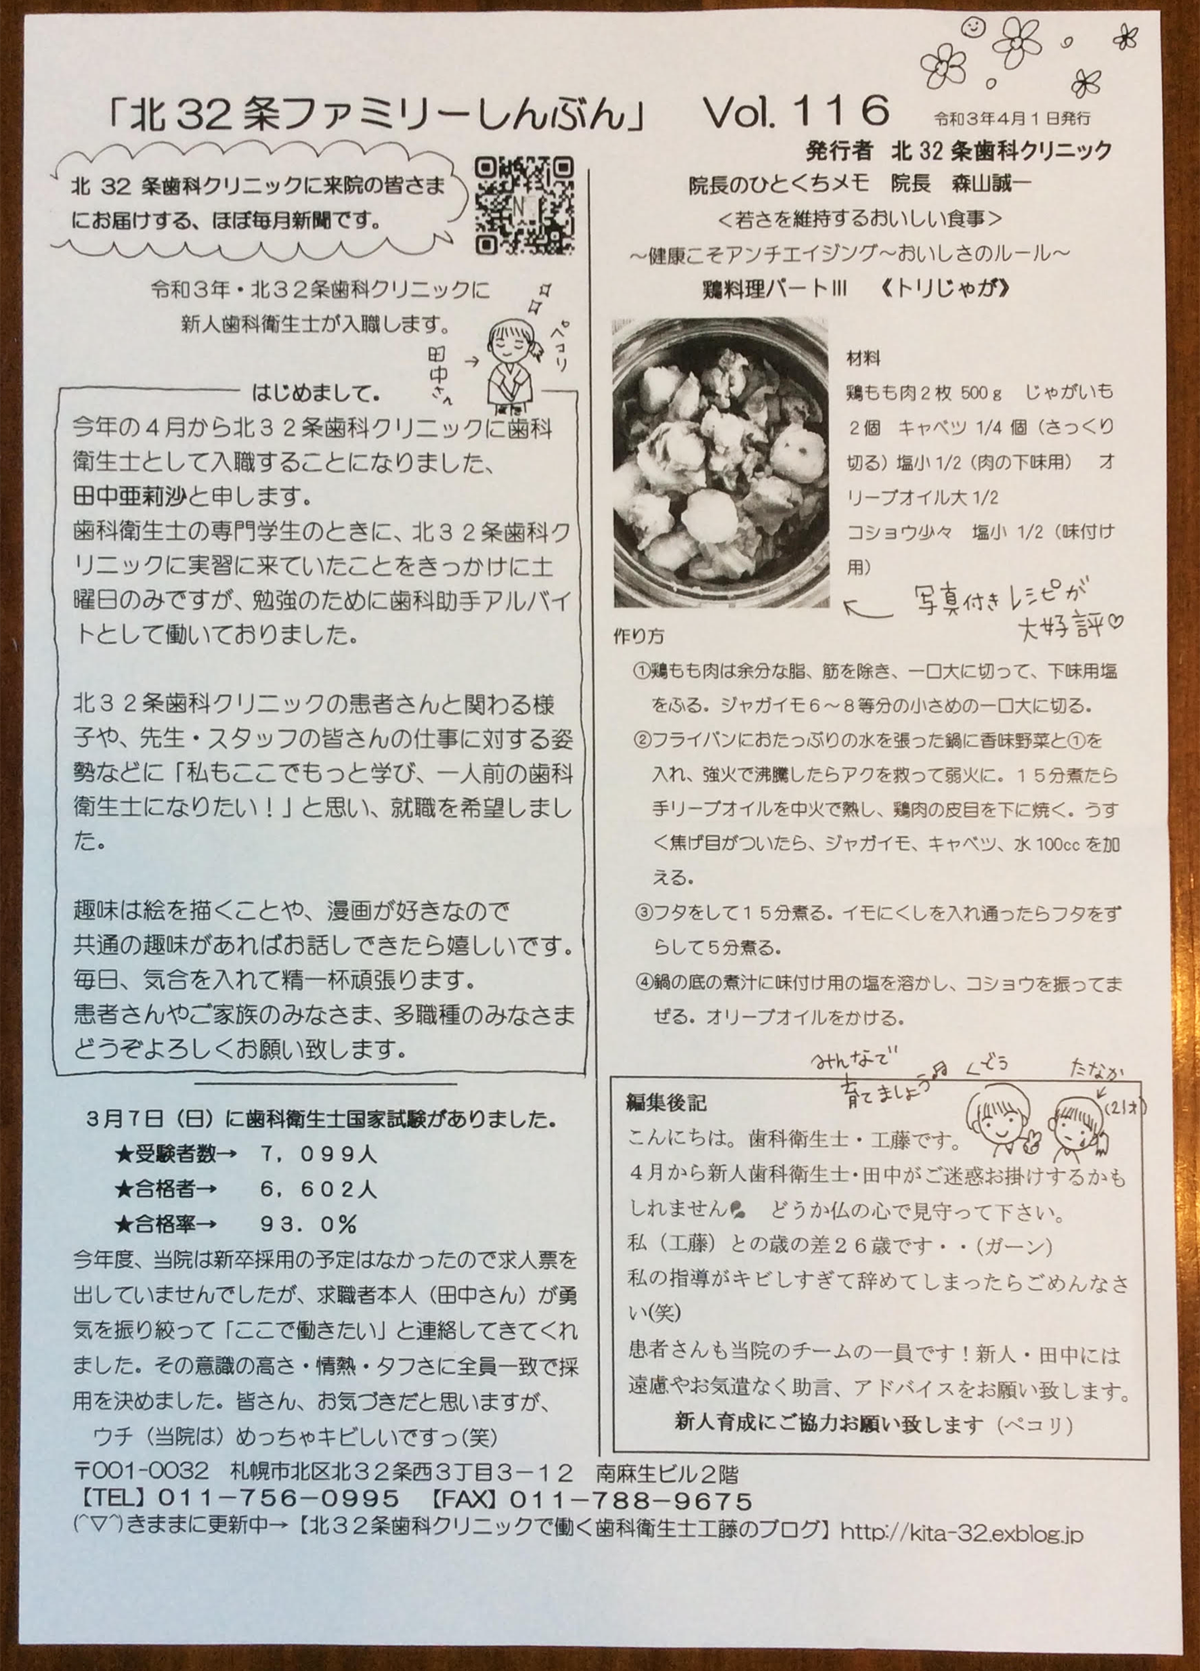 「北32条ファミリーしんぶん」 Vol.116 令和3年4月1日発行
発行者 北32条歯科クリニック
北 32 条歯科クリニックに来院の皆さま
にお届けする、ほぼ毎月新聞です。
令和3年・北32条歯科クリニックに
新人歯科衛生士が入職します。
田中さん→
ペコリ
はじめまして。
今年の4月から北32条歯科クリニックに歯科
衛生士として入職することになりました、
田中亜莉沙と申します。
歯科衛生士の専門学生のときに、北32条歯科ク
リニックに実習に来ていたことをきっかけに土
曜日のみですが、勉強のために歯科助手アルバイ
トとして働いておりました。
北32条歯科クリニックの患者さんと関わる様
子や、先生・スタッフの皆さんの仕事に対する姿
勢などに「私もここでもっと学び、一人前の歯科
衛生士になりたい!」と思い、就職を希望しまし
た。
趣味は絵を描くことや、漫画が好きなので
共通の趣味があればお話しできたら嬉しいです。
毎日、気合を入れて精一杯頑張ります。
患者さんやご家族のみなさま、多職種のみなさま
どうぞよろしくお願い致します。
3月7日(日)に歯科衛生士国家試験がありました。
★受験者数→ 7,099人
★合格者→ 6,602人
★合格率→ 93.0%
今年度、当院は新卒採用の予定はなかったので求人票を
出していませんでしたが、求職者本人(田中さん)が勇
気を振り絞って「ここで働きたい」と連絡してきてくれ
ました。その意識の高さ・情熱・タフさに全員一致で採
用を決めました。皆さん、お気づきだと思いますが、
ウチ(当院は)めっちゃキビしいですっ(笑)
院長のひとくちメモ 院長 森山誠一
<若さを維持するおいしい食事>
~健康こそアンチエイジング~おいしさのルール~
鶏料理パートⅢ 《トリじゃが》
材料
鶏もも肉2枚 500g じゃがいも
2個 キャベツ 1/4 個(さっくり
切る)塩小 1/2(肉の下味用) オ
リーブオイル大 1/2
コショウ少々 塩小 1/2(味付け
用)
← 写真付きレシピが
大好評♡
作り方
①鶏もも肉は余分な脂、筋を除き、一口大に切って、下味用塩
をふる。ジャガイモ6~8等分の小さめの一口大に切る。
②フライパンにおたっぷりの水を張った鍋に香味野菜と①を
入れ、強火で沸騰したらアクを救って弱火に。15分煮たら
手リーブオイルを中火で熱し、鶏肉の皮目を下に焼く。うす
く焦げ目がついたら、ジャガイモ、キャベツ、水100ccを加
える。
③フタをして15分煮る。イモにくしを入れ通ったらフタをず
らして5分煮る。
④鍋の底の煮汁に味付け用の塩を溶かし、コショウを振ってま
ぜる。オリーブオイルをかける。
みんなで
育てましょう♫
くどう
たなか
(21才)
編集後記
こんにちは。歯科衛生士・工藤です。
4月から新人歯科衛生士・田中がご迷惑お掛けするかも
しれません どうか仏の心で見守って下さい。
私(工藤)との歳の差26歳です・・(ガーン)
私の指導がキビしすぎて辞めてしまったらごめんなさ
い(笑)
患者さんも当院のチームの一員です!新人・田中には
遠慮やお気遣なく助言、アドバイスをお願い致します。
新人育成にご協力お願い致します(ペコリ)
〒001-0032 札幌市北区北32条西3丁目3-12 南麻生ビル2階
【TEL】011-756-0995 【FAX】011-788-9675
(^▽^)きままに更新中→【北32条歯科クリニックで働く歯科衛生士工藤のブログ】http://kita-32.exblog.jp